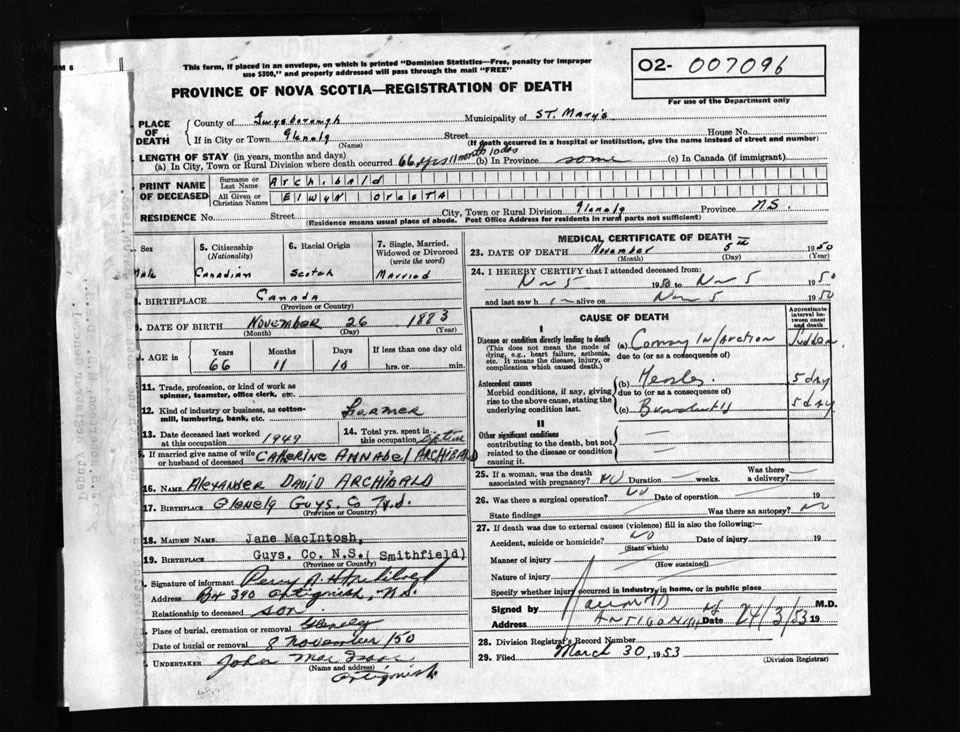 RM 6
This form, if placed in an envelope, on which is printed "Dominion Statistics—Free, penalty for improper
use $300," and properly addressed will pass through the mail "FREE"
PROVINCE OF NOVA SCOTIA—REGISTRATION OF DEATH
O2- 007096
For use of the Department only
PLACE OF DEATH
County of Guysborough Municipality of ST. Mary's
If in City or Town Glenelg Street House No.
(Name) (If death occurred in a hospital or institution, give the name instead of street and number)
LENGTH OF STAY (in years, months and days)
(a) In City, Town or Rural Division where death occurred 66 yrs 11 month 10 ds (b) In Province same (c) In Canada (if immigrant)
PRINT NAME OF DECEASED
Surname or Last Name Archibald
All Given or Christian Names Elwyn Oresta
RESIDENCE No. Street City, Town or Rural Division Glenelg Province N.S.
(Residence means usual place of abode. Post Office Address for residents in rural parts not sufficient)
Sex
Male
5. Citizenship
(Nationality)
Canadian
6. Racial Origin
Scotch
7. Single, Married, Widowed or Divorced
(write the word)
Married
BIRTHPLACE Canada
(Province or Country)
DATE OF BIRTH November 26 1883
(Month) (Day) (Year)
AGE in Years Months Days If less than one day old
66 11 10 hrs. or min.
11. Trade, profession, or kind of work as
spinner, teamster, office clerk, etc.
12. Kind of industry or business, as cotton-
mill, lumbering, bank, etc. Farmer
13. Date deceased last worked
at this occupation 1949
14. Total yrs. spent in
this occupation lifetime
If married give name of wife
or husband of deceased Catherine Annabel Archibald
16. NAME Alexander David Archibald
17. BIRTHPLACE Glenelg Guys. Co N.S.
(Province or Country)
18. MAIDEN NAME Jane MacIntosh,
19. BIRTHPLACE Guys. Co. N.S.( Smithfield)
(Province or Country)
Signature of informant Percy A. H Archibald
Address Bx 390 Antigonish, N.S.
Relationship to deceased son
Place of burial, cremation or removal Glenelg
Date of burial or removal 8 November /50
UNDERTAKER John Mac Isaac
(Name and address)
Antigonish
MEDICAL CERTIFICATE OF DEATH
23. DATE OF DEATH November 5th 1950
(Month) (Day) (Year)
24. I HEREBY CERTIFY that I attended deceased from:
Nov 5 1950 to Nov 5 1950
and last saw h i m alive on Nov 5 1950
CAUSE OF DEATH
Approximate interval between onset and death
I
Disease or condition directly leading to death
(This does not mean the mode of
dying, e.g., heart failure, asthenia,
etc. It means the disease, injury, or
complication which caused death.)
(a) Coronary Infarction Sudden
due to (or as a consequence of)
Antecedent causes
Morbid conditions, if any, giving
rise to the above cause, stating the
underlying condition last.
(b) Measles 5 day
due to (or as a consequence of)
(c) Bronchitis 5 day
II
Other significant conditions
contributing to the death, but not
related to the disease or condition
causing it.
25. If a woman, was the death
associated with pregnancy? NO Duration weeks. Was there a delivery?
26. Was there a surgical operation? NO Date of operation 19
State findings Was there an autopsy? No
27. If death was due to external causes (violence) fill in also the following:—
Accident, suicide or homicide? NO Date of injury 19
(State which)
Manner of injury
(How sustained)
Nature of injury
Specify whether injury occurred in industry, in home, or in public place
Signed by M.D.
Address Antigonish NS Date 24/3/53 19
28. Division Registrar's Record Number
29. Filed March 30, 1953
(Division Registrar)